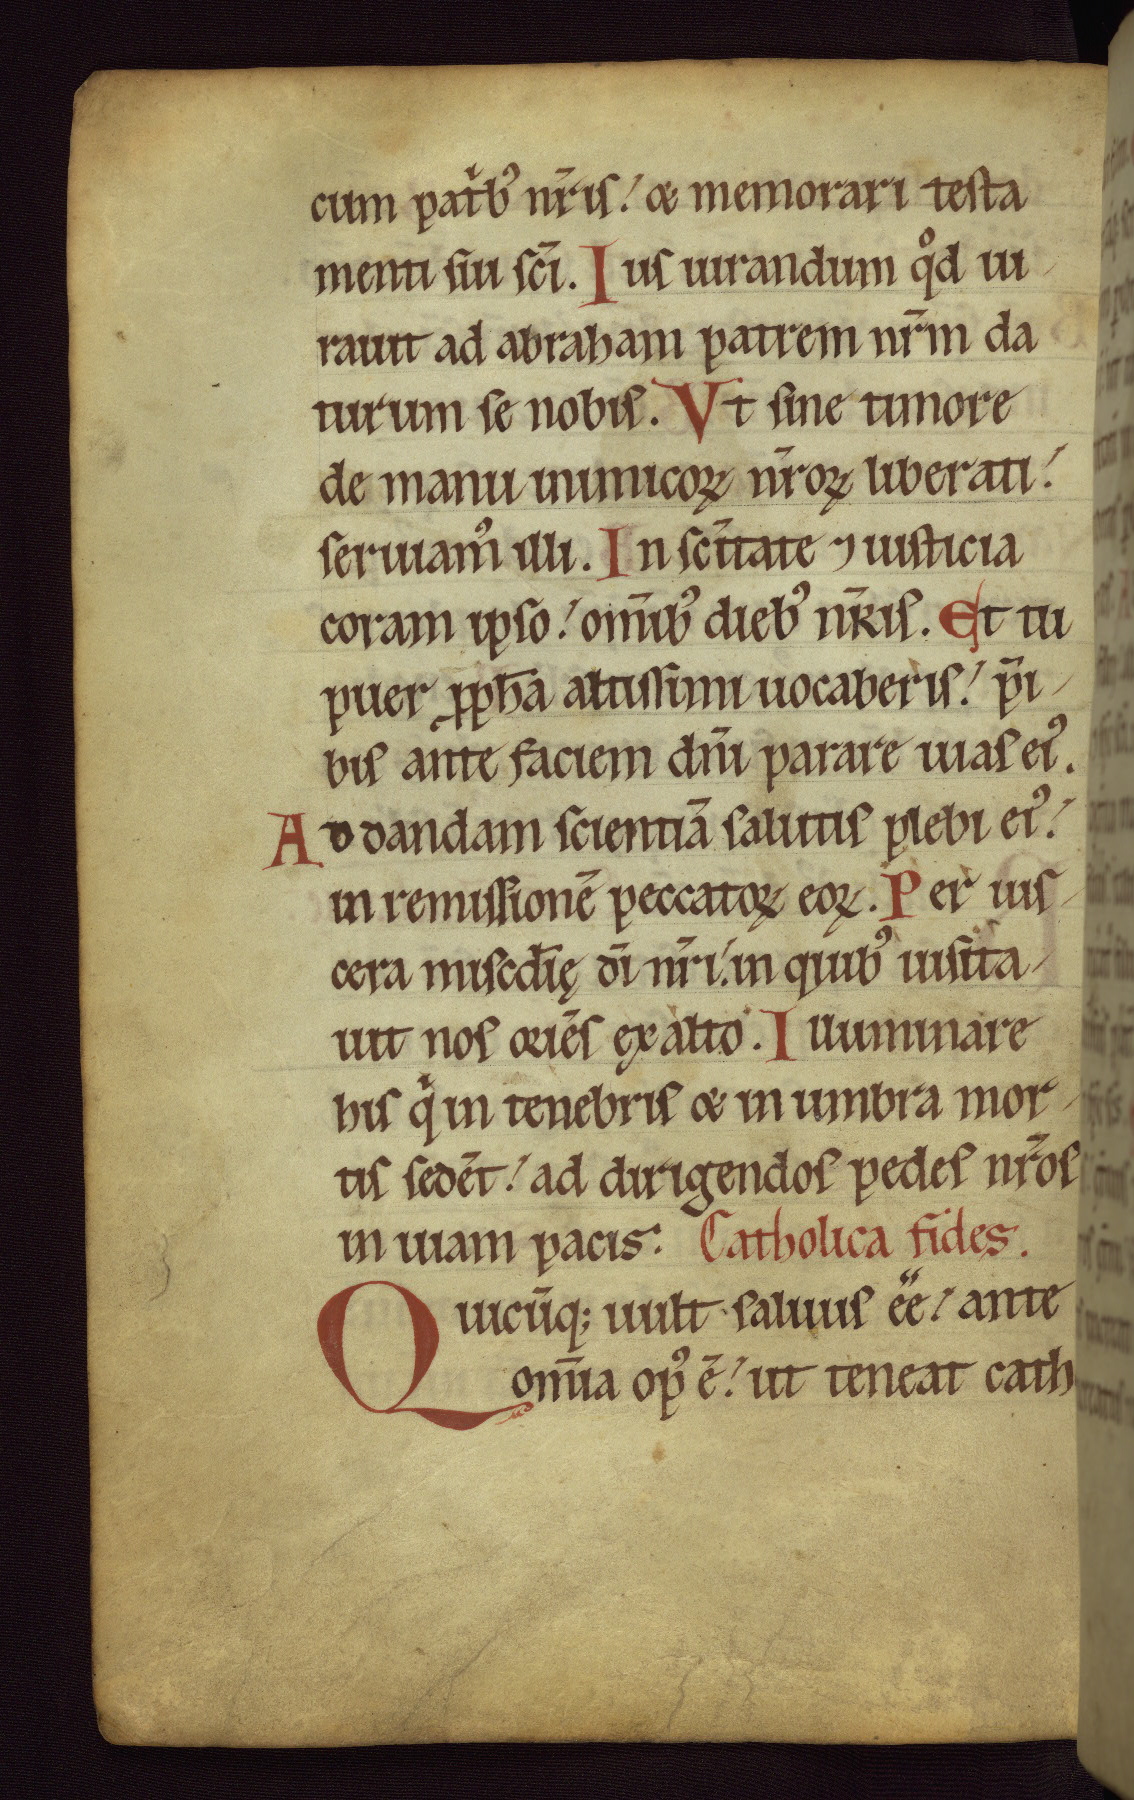 cum patͥbꝰ nr̄is! & memorari testa
menti sui sc̄i. Ius iurandum qͦd iu-
rauit ad abraham patrem nr̄m da
turum se nobis. Vt sine timore
de manu inimicoꝝ nr̄oꝝ liberati!
seruiamꝰ illi. In sc̄itate ⁊ iusticia
coram ipso! om̄ibꝰ diebꝰ nr̄is. Et tu
puer ꝓph̄a altissimi uocaberis! p̄i-
bis ante faciem dn̄i parare uias eiꝰ.
Ad dandam scientiā salutis plebi eiꝰ!
in remissionē peccatoꝝ eoꝝ. Per uis-
cera misc̄dię dī nr̄i! in quibꝰ uisita-
uit nos oriēs ex alto. Illuminare
his qͥ in tenebris & in umbra mor-
tis sedēt! ad dirigendos pedes nr̄os
in uiam pacis. Catholica fides.
Quicūq; uult saluus ēē! ante
om̄ia opꝰ ē! ut teneat cath